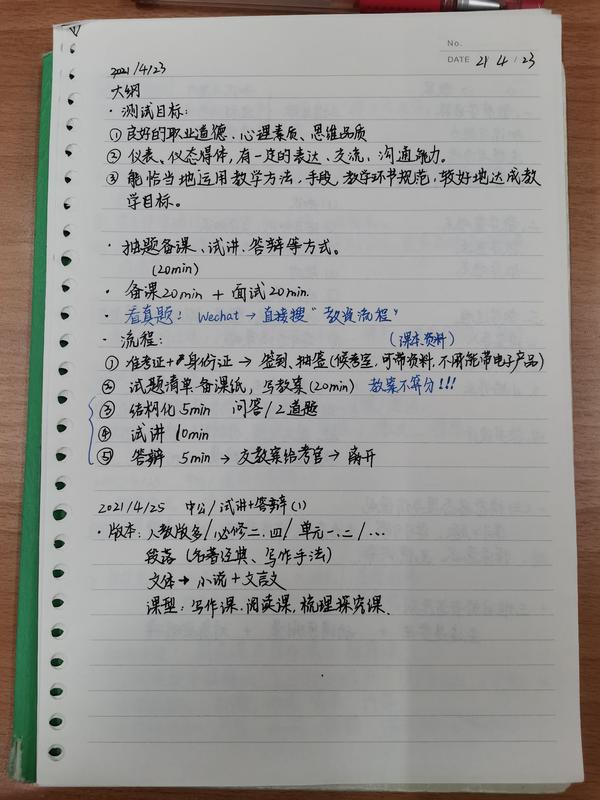 No.
DATE 21 / 4 / 23
2021/4/23
大纲
· 测试目标:
① 良好的职业道德、心理素质、思维品质
② 仪表、仪态得体,有一定的表达、交流、沟通能力。
③ 能恰当地运用教学方法,手段,教学环节规范,较好地达成教
学目标。
· 抽题备课、试讲、答辩等方式。
(20min)
· 备课20min + 面试20min.
· 看真题! Wechat → 直接搜"教资流程"
· 流程: (课本资料)
① 准考证+身份证 → 签到、抽签(候考室,可带资料,不用能带电子产品)
② 试题清单 备课纸,写教案(20min) 教案不算分!!!
③ 结构化 5min 问答/2道题
④ 试讲 10min
⑤ 答辩 5min → 交教案给考官 → 离开
2021/4/25 中公/试讲+答辩(1)
· 版本: 人教版多/必修二.四/单元一.二/…
段落(名著经典、写作手法)
文体 → 小说+文言文
课型: 写作课.阅读课.梳理探究课.